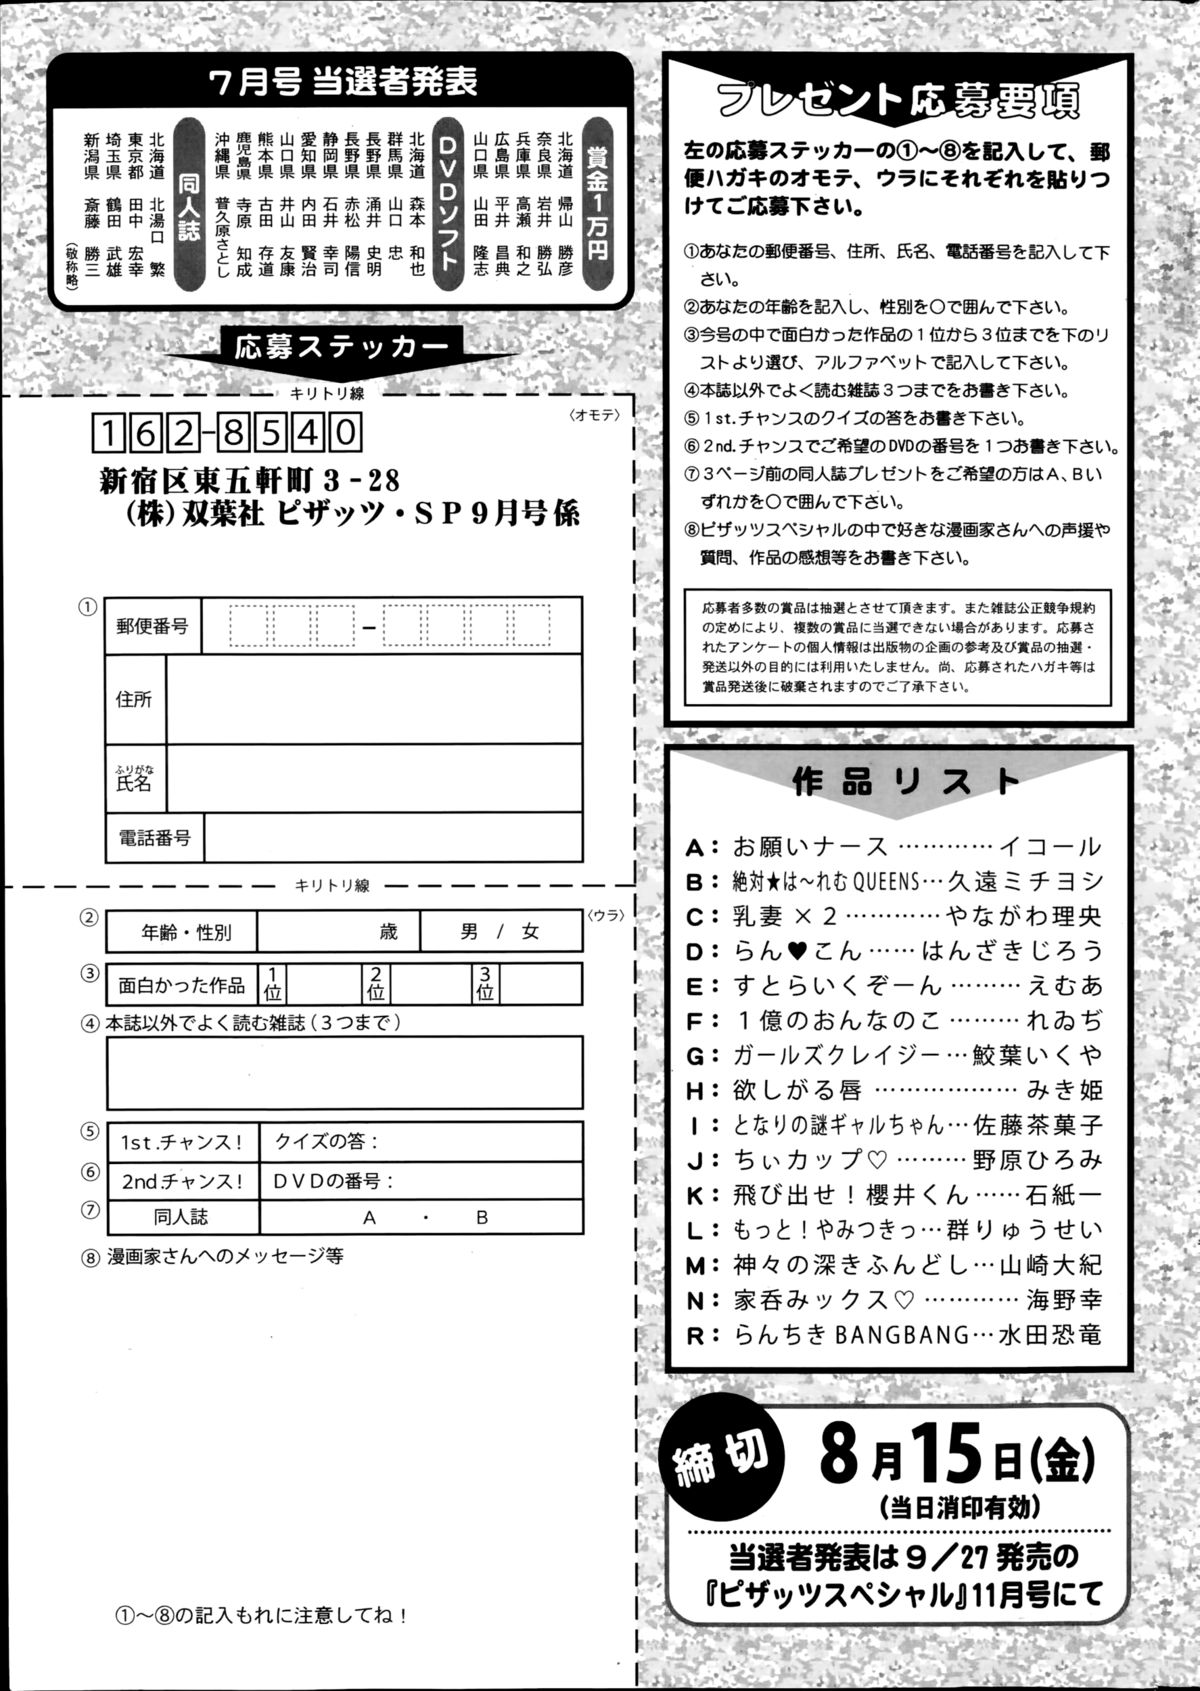 7月号 当選者発表
賞金1万円
北海道 帰山 勝彦
奈良県 岩井 勝弘
兵庫県 高瀬 和之
広島県 平井 昌典
山口県 山田 隆志
DVDソフト
北海道 森本 和也
群馬県 山口 忠
長野県 涌井 史明
長野県 赤松 陽信
静岡県 石井 幸司
愛知県 内田 賢治
山口県 井山 友康
熊本県 古田 存道
鹿児島県 寺原 知成
沖縄県 普久原さとし
同人誌
北海道 北湯口 繁
東京都 田中 宏幸
埼玉県 鶴田 武雄
新潟県 斎藤 勝三
(敬称略)
応募ステッカー
キリトリ線
〈オモテ〉
162-8540
新宿区東五軒町3-28
(株)双葉社 ピザッツ・SP9月号係
①
郵便番号
–
住所
ふりがな
氏名
電話番号
キリトリ線
〈ウラ〉
② 年齢・性別 歳 男 / 女
③ 面白かった作品 1位 2位 3位
④ 本誌以外でよく読む雑誌(3つまで)
⑤ 1st.チャンス! クイズの答:
⑥ 2ndチャンス! DVDの番号:
⑦ 同人誌 A ・ B
⑧ 漫画家さんへのメッセージ等
①〜⑧の記入もれに注意してね!
プレゼント応募要項
左の応募ステッカーの①〜⑧を記入して、郵
便ハガキのオモテ、ウラにそれぞれを貼りつ
けてご応募下さい。
①あなたの郵便番号、住所、氏名、電話番号を記入して下
さい。
②あなたの年齢を記入し、性別を○で囲んで下さい。
③今号の中で面白かった作品の1位から3位までを下のリ
ストより選び、アルファベットで記入して下さい。
④本誌以外でよく読む雑誌3つまでをお書き下さい。
⑤1st.チャンスのクイズの答をお書き下さい。
⑥2nd.チャンスでご希望のDVDの番号を1つお書き下さい。
⑦3ページ前の同人誌プレゼントをご希望の方はA、Bい
ずれかを○で囲んで下さい。
⑧ピザッツスペシャルの中で好きな漫画家さんへの声援や
質問、作品の感想等をお書き下さい。
応募者多数の賞品は抽選とさせて頂きます。また雑誌公正競争規約
の定めにより、複数の賞品に当選できない場合があります。応募さ
れたアンケートの個人情報は出版物の企画の参考及び賞品の抽選・
発送以外の目的には利用いたしません。尚、応募されたハガキ等は
賞品発送後に破棄されますのでご了承下さい。
作品リスト
A:お願いナース…………イコール
B:絶対★は〜れむQUEENS…久遠ミチヨシ
C:乳妻×2…………やながわ理央
D:らん♥こん……はんざきじろう
E:すとらいくぞーん………えむあ
F:1億のおんなのこ………れゐぢ
G:ガールズクレイジー…鮫葉いくや
H:欲しがる唇………………みき姫
I:となりの謎ギャルちゃん…佐藤茶菓子
J:ちぃカップ♡………野原ひろみ
K:飛び出せ!櫻井くん……石紙一
L:もっと!やみつきっ…群りゅうせい
M:神々の深きふんどし…山崎大紀
N:家呑みックス♡…………海野幸
R:らんちきBANGBANG…水田恐竜
締切
8月15日(金)
(当日消印有効)
当選者発表は9/27発売の
『ピザッツスペシャル』11月号にて